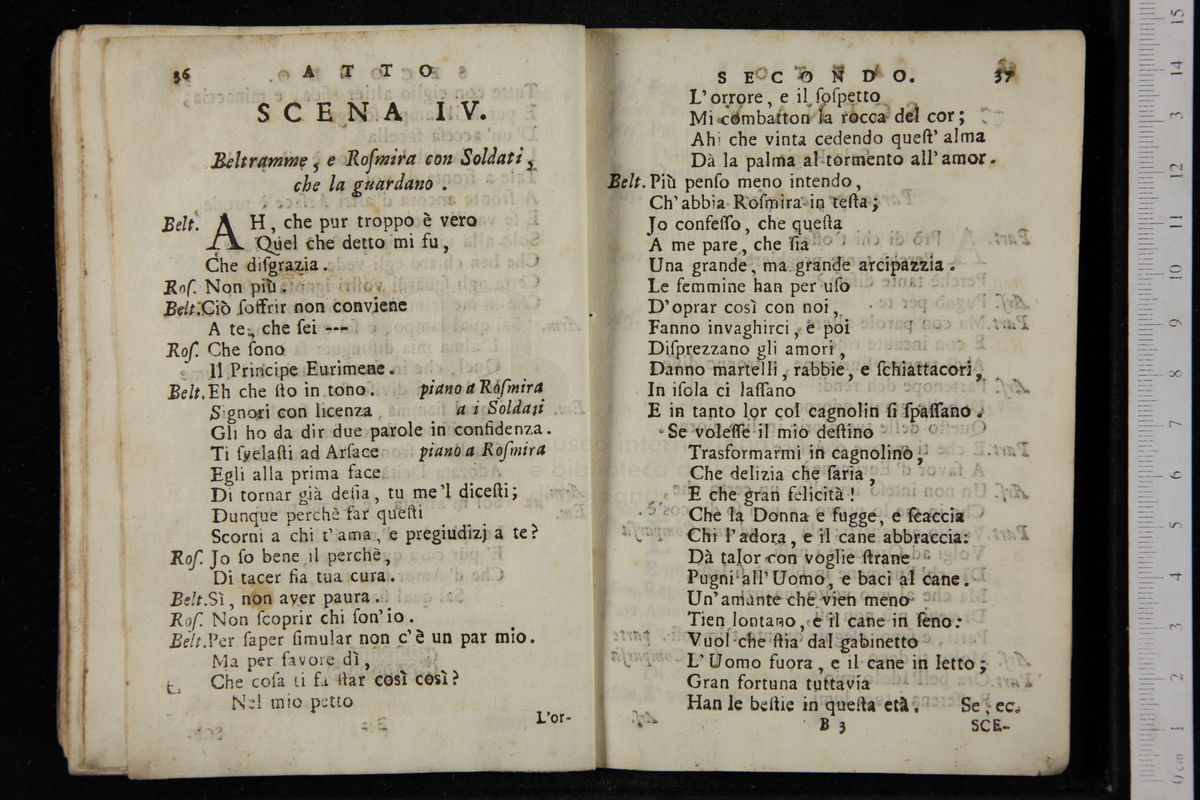 36 A T T O
SCENA IV.
Beltramme, e Roſmira con Soldati,
che la guardano.
Belt. AH, che pur troppo è vero
Quel che detto mi fu,
Che diſgrazia.
Roſ. Non più.
Belt. Ciò ſoffrir non conviene
A te, che ſei ---
Roſ. Che ſono
Il Principe Eurimene.
Belt. Eh che ſto in tono. piano a Roſmira
Signori con licenza a i Soldati
Gli ho da dir due parole in confidenza.
Ti ſvelaſti ad Arſace piano a Roſmira
Egli alla prima face
Di tornar già deſia, tu me'l diceſti;
Dunque perchè far queſti
Scorni a chi t'ama, e pregiudizj a te?
Roſ. Jo ſo bene il perchè,
Di tacer ſia tua cura.
Belt. Sì, non aver paura.
Roſ. Non ſcoprir chi ſon'io.
Belt. Per ſaper ſimular non c'è un par mio.
Ma per favore dì,
Che coſa ti fa ſtar così così?
Nel mio petto
L'or-
SECONDO. 37
L'orrore, e il ſoſpetto
Mi combatton la rocca del cor;
Ahi che vinta cedendo queſt'alma
Dà la palma al tormento all'amor.
Belt. Più penſo meno intendo,
Ch'abbia Roſmira in teſta;
Jo confeſſo, che queſta
A me pare, che ſia
Una grande, ma grande arcipazzia.
Le femmine han per uſo
D'oprar così con noi,
Fanno invaghirci, e poi
Diſprezzano gli amori,
Danno martelli, rabbie, e ſchiattacori,
In iſola ci laſſano
E in tanto lor col cagnolin ſi ſpaſſano.
Se voleſſe il mio deſtino
Trasformarmi in cagnolino,
Che delizia che ſaria,
E che gran felicità!
Che la Donna e fugge, e ſcaccia
Chi l'adora, e il cane abbraccia:
Dà talor con voglie ſtrane
Pugni all'Uomo, e baci al cane.
Un'amante che vien meno
Tien lontano, e il cane in ſeno:
Vuol che ſtia dal gabinetto
L'Uomo fuora, e il cane in letto;
Gran fortuna tuttavia
Han le beſtie in queſta età. Se, ec.
B 3 SCE-